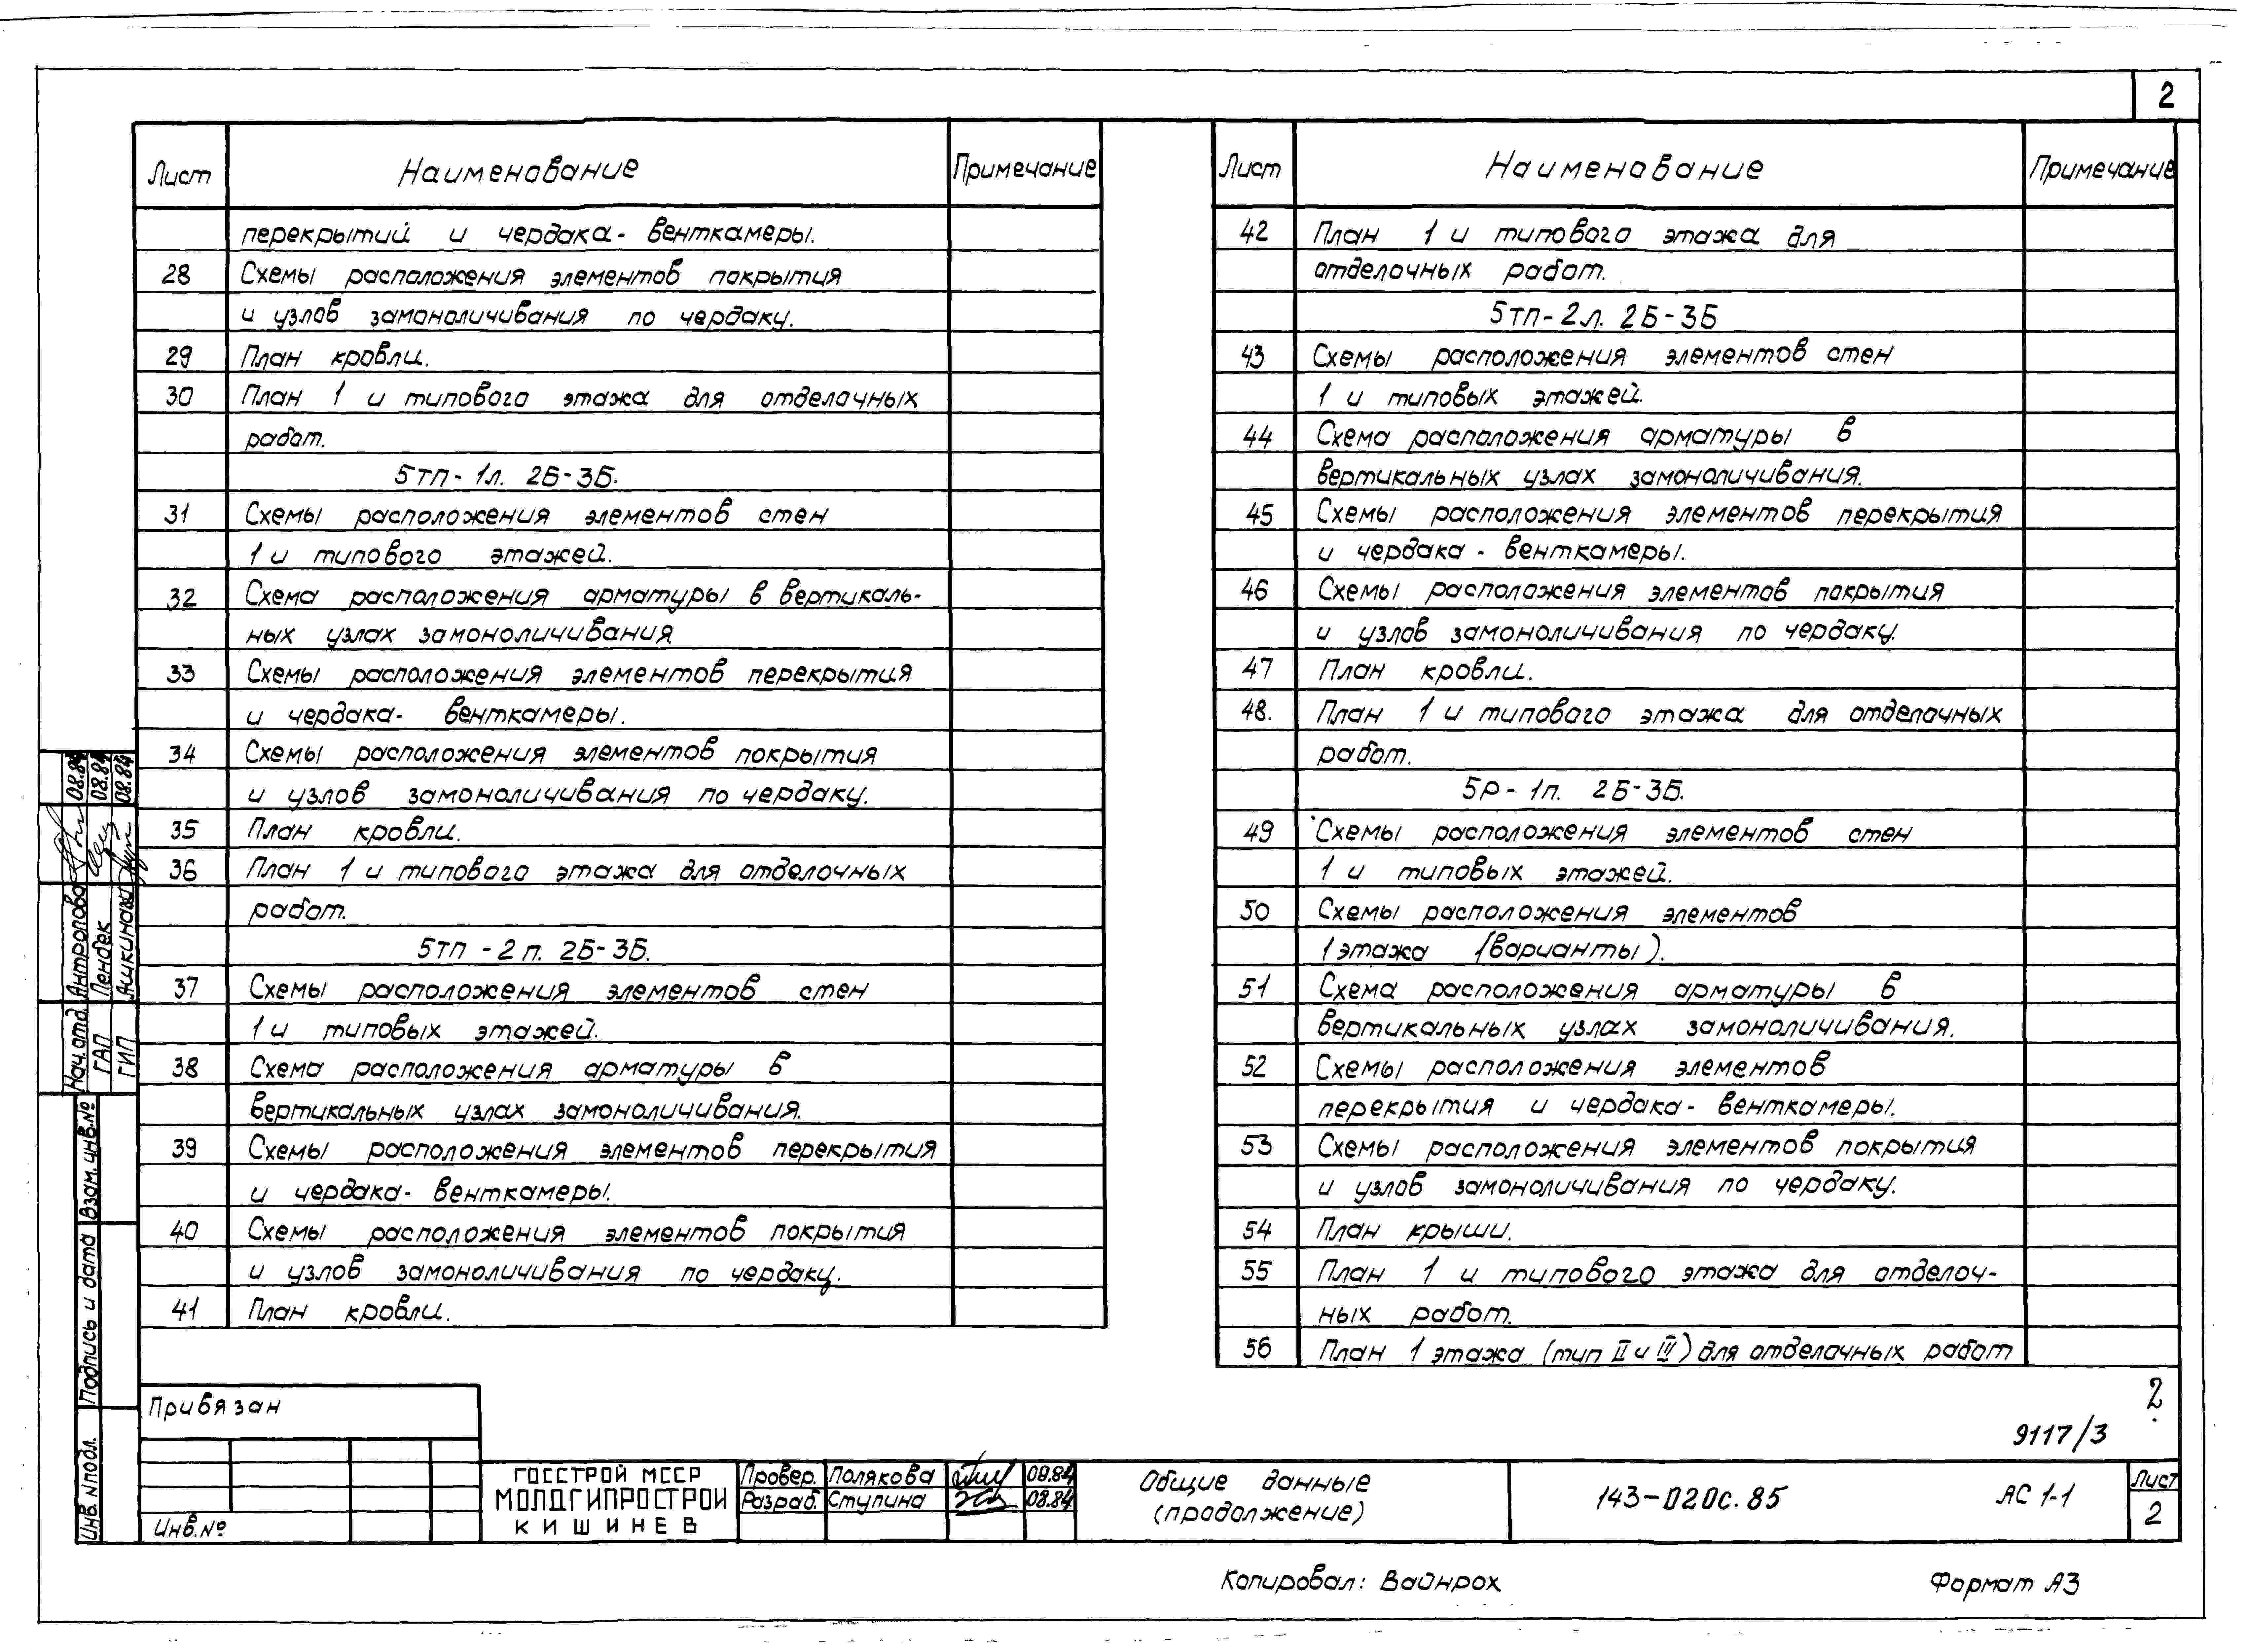 2
Лист Наименование Примечание
перекрытий и чердака- венткамеры.
28 Схемы расположения элементов покрытия
и узлов замоноличивания по чердаку.
29 План кровли.
30 План 1 и типового этажа для отделочных
работ.
5тп- 1л. 2Б-3Б.
31 Схемы расположения элементов стен
1 и типового этажей.
32 Схема расположения арматуры в вертикаль-
ных узлах замоноличивания
33 Схемы расположения элементов перекрытия
и чердака- венткамеры.
34 Схемы расположения элементов покрытия
и узлов замоноличивания по чердаку.
35 План кровли.
36 План 1 и типового этажа для отделочных
работ.
5тп -2п. 2Б-3Б.
37 Схемы расположения элементов стен
1 и типовых этажей.
38 Схема расположения арматуры в
вертикальных узлах замоноличивания.
39 Схемы расположения элементов перекрытия
и чердака- венткамеры.
40 Схемы расположения элементов покрытия
и узлов замоноличивания по чердаку.
41 План кровли.
Лист Наименование Примечание
42 План 1 и типового этажа для
отделочных работ.
5тп-2л. 2Б-3Б
43 Схемы расположения элементов стен
1 и типовых этажей.
44 Схема расположения арматуры в
вертикальных узлах замоноличивания.
45 Схемы расположения элементов перекрытия
и чердака - венткамеры.
46 Схемы расположения элементов покрытия
и узлов замоноличивания по чердаку.
47 План кровли.
48. План 1 и типового этажа для отделочных
работ.
5Р- 1п. 2Б-3Б.
49 Схемы расположения элементов стен
1 и типовых этажей.
50 Схемы расположения элементов
1 этажа (варианты).
51 Схема расположения арматуры в
вертикальных узлах замоноличивания.
52 Схемы расположения элементов
перекрытия и чердака- венткамеры.
53 Схемы расположения элементов покрытия
и узлов замоноличивания по чердаку.
54 План крыши.
55 План 1 и типового этажа для отделоч-
ных работ.
56 План 1 этажа (тип II и III) для отделочных работ
Нач.отд. Антропова 08.84
ГАП Пендек 08.84
ГИП Ашкинази 08.84
Взам. инв.№
Подпись и дата
Инв. №подл.
Привязан
Инв.№
ГОССТРОЙ МССР
МОЛДГИПРОСТРОЙ
КИШИНЕВ
Провер. Полякова 08.84
Разраб. Ступина 08.84
Общие данные
(продолжение)
2
9117/3
143-020с.85 АС 1-1
Лист
2
Копировал: Вайнрох
Формат А3